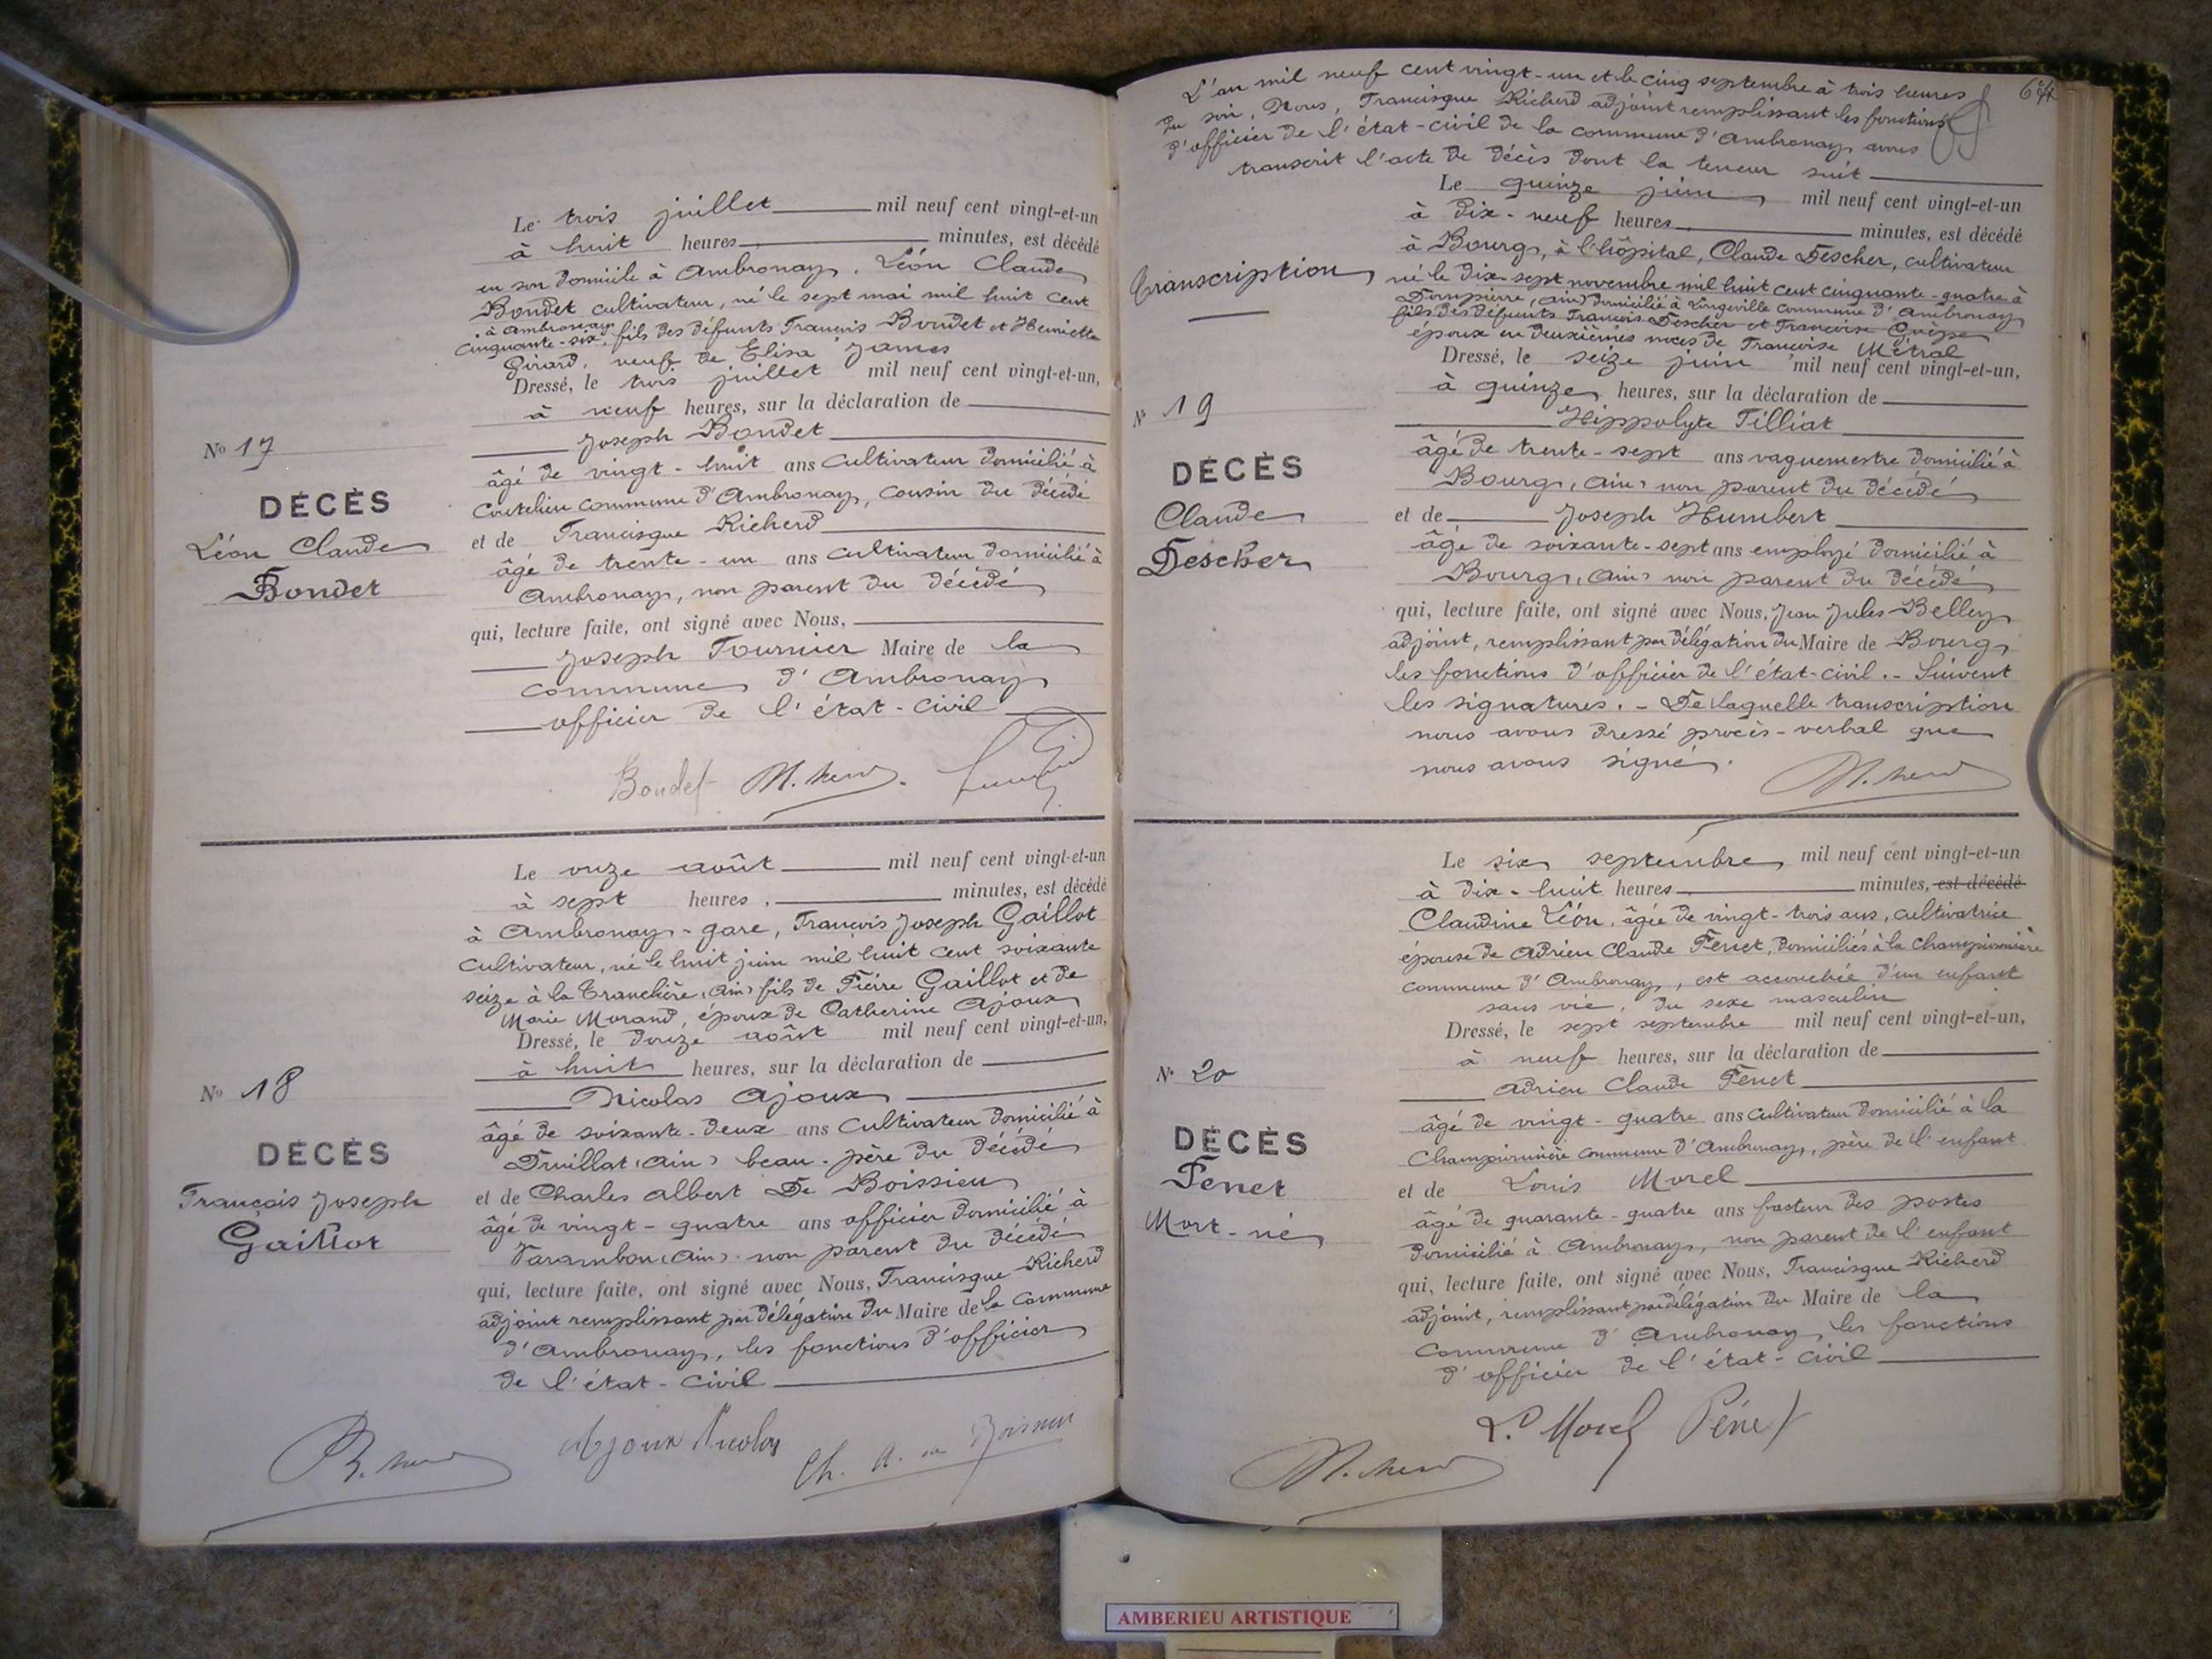 Le trois juillet mil neuf cent vingt-et-un
à huit heures minutes, est décédé
en son domicile à Ambronay, Léon Claude
Bondet cultivateur, né le sept mai mil huit cent
à Ambronay
cinquante-six, fils des défunts François Bondet et Henriette
Girard, veuf de Elisa James
Dressé, le trois juillet mil neuf cent vingt-et-un,
à neuf heures, sur la déclaration de
Joseph Bondet
No 17
âgé de vingt-huit ans cultivateur domicilié à
DÉCÈS
Coutelieu commune d'Ambronay, cousin du décédé
Léon Claude
et de Francisque Richerd
Bondet
âgé de trente-un ans cultivateur domicilié à
Ambronay, non parent du décédé
qui, lecture faite, ont signé avec Nous,
Joseph Tournier Maire de la
commune d'Ambronay
officier de l'état-civil
Bondet
Le onze août mil neuf cent vingt-et-un
à sept heures, minutes, est décédé
à Ambronay-gare, François Joseph Gaillot
cultivateur, né le huit juin mil huit cent soixante
seize à la Tranclière (Ain) fils de Pierre Gaillot et de
Marie Morand, époux de Catherine Ajoux
Dressé, le douze août mil neuf cent vingt-et-un,
à huit heures, sur la déclaration de
No 18
Nicolas Ajoux
âgé de soixante-deux ans cultivateur domicilié à
DÉCÈS
Druillat (Ain) beau-père du décédé
François Joseph
et de Charles Albert De Boissieu
Gaillot
âgé de vingt-quatre ans officier domicilié à
Varambon (Ain) non parent du décédé
qui, lecture faite, ont signé avec Nous, Francisque Richerd
adjoint remplissant par délégation du Maire de la commune
d'Ambronay, les fonctions d'officier
de l'état-civil
Ajoux Nicolas
Ch. A. de Boissieu
L'an mil neuf cent vingt-un et le cinq septembre à trois heures
du soir, Nous, Francisque Richerd adjoint remplissant les fonctions
d'officier de l'état-civil de la commune d'Ambronay avons
transcrit l'acte de décès dont la teneur suit
Le quinze juin mil neuf cent vingt-et-un
à dix-neuf heures minutes, est décédé
à Bourg, à l'hôpital, Claude Descher, cultivateur
Transcription
né le dix-sept novembre mil huit cent cinquante-quatre à
Dompierre, (Ain) domicilié à Longeville commune d'Ambronay
fils des défunts François Descher et Françoise
époux en deuxièmes noces de Françoise Métral
Dressé, le seize juin mil neuf cent vingt-et-un,
à quinze heures, sur la déclaration de
N° 19
Hippolyte Tilliat
âgé de trente-sept ans vaguemestre domicilié à
DÉCÈS
Bourg, (Ain) non parent du décédé
Claude
et de Joseph Humbert
Descher
âgé de soixante-sept ans employé domicilié à
Bourg, (Ain) non parent du décédé
qui, lecture faite, ont signé avec Nous, Jean Jules Belley
adjoint, remplissant par délégation du Maire de Bourg,
les fonctions d'officier de l'état-civil.- Suivent
les signatures.- De laquelle transcription
nous avons dressé procès-verbal que
nous avons signé.
Le six septembre mil neuf cent vingt-et-un
à dix-huit heures minutes, est décédé
Claudine Léon, âgée de vingt-trois ans, cultivatrice
épouse de Adrien Claude Penet, domiciliés à la Championnière
commune d'Ambronay, est accouchée d'un enfant
sans vie, du sexe masculin
Dressé, le sept septembre mil neuf cent vingt-et-un,
à neuf heures, sur la déclaration de
N° 20
Adrien Claude Penet
âgé de vingt-quatre ans cultivateur domicilié à la
DÉCÈS
Championnière commune d'Ambronay, père de l'enfant
Penet
et de Louis Morel
Mort-né
âgé de quarante-quatre ans facteur des postes
domicilié à Ambronay, non parent de l'enfant
qui, lecture faite, ont signé avec Nous, Francisque Richerd
adjoint, remplissant par délégation du Maire de la
commune d'Ambronay, les fonctions
d'officier de l'état-civil
L. Morel Penet
AMBERIEU ARTISTIQUE